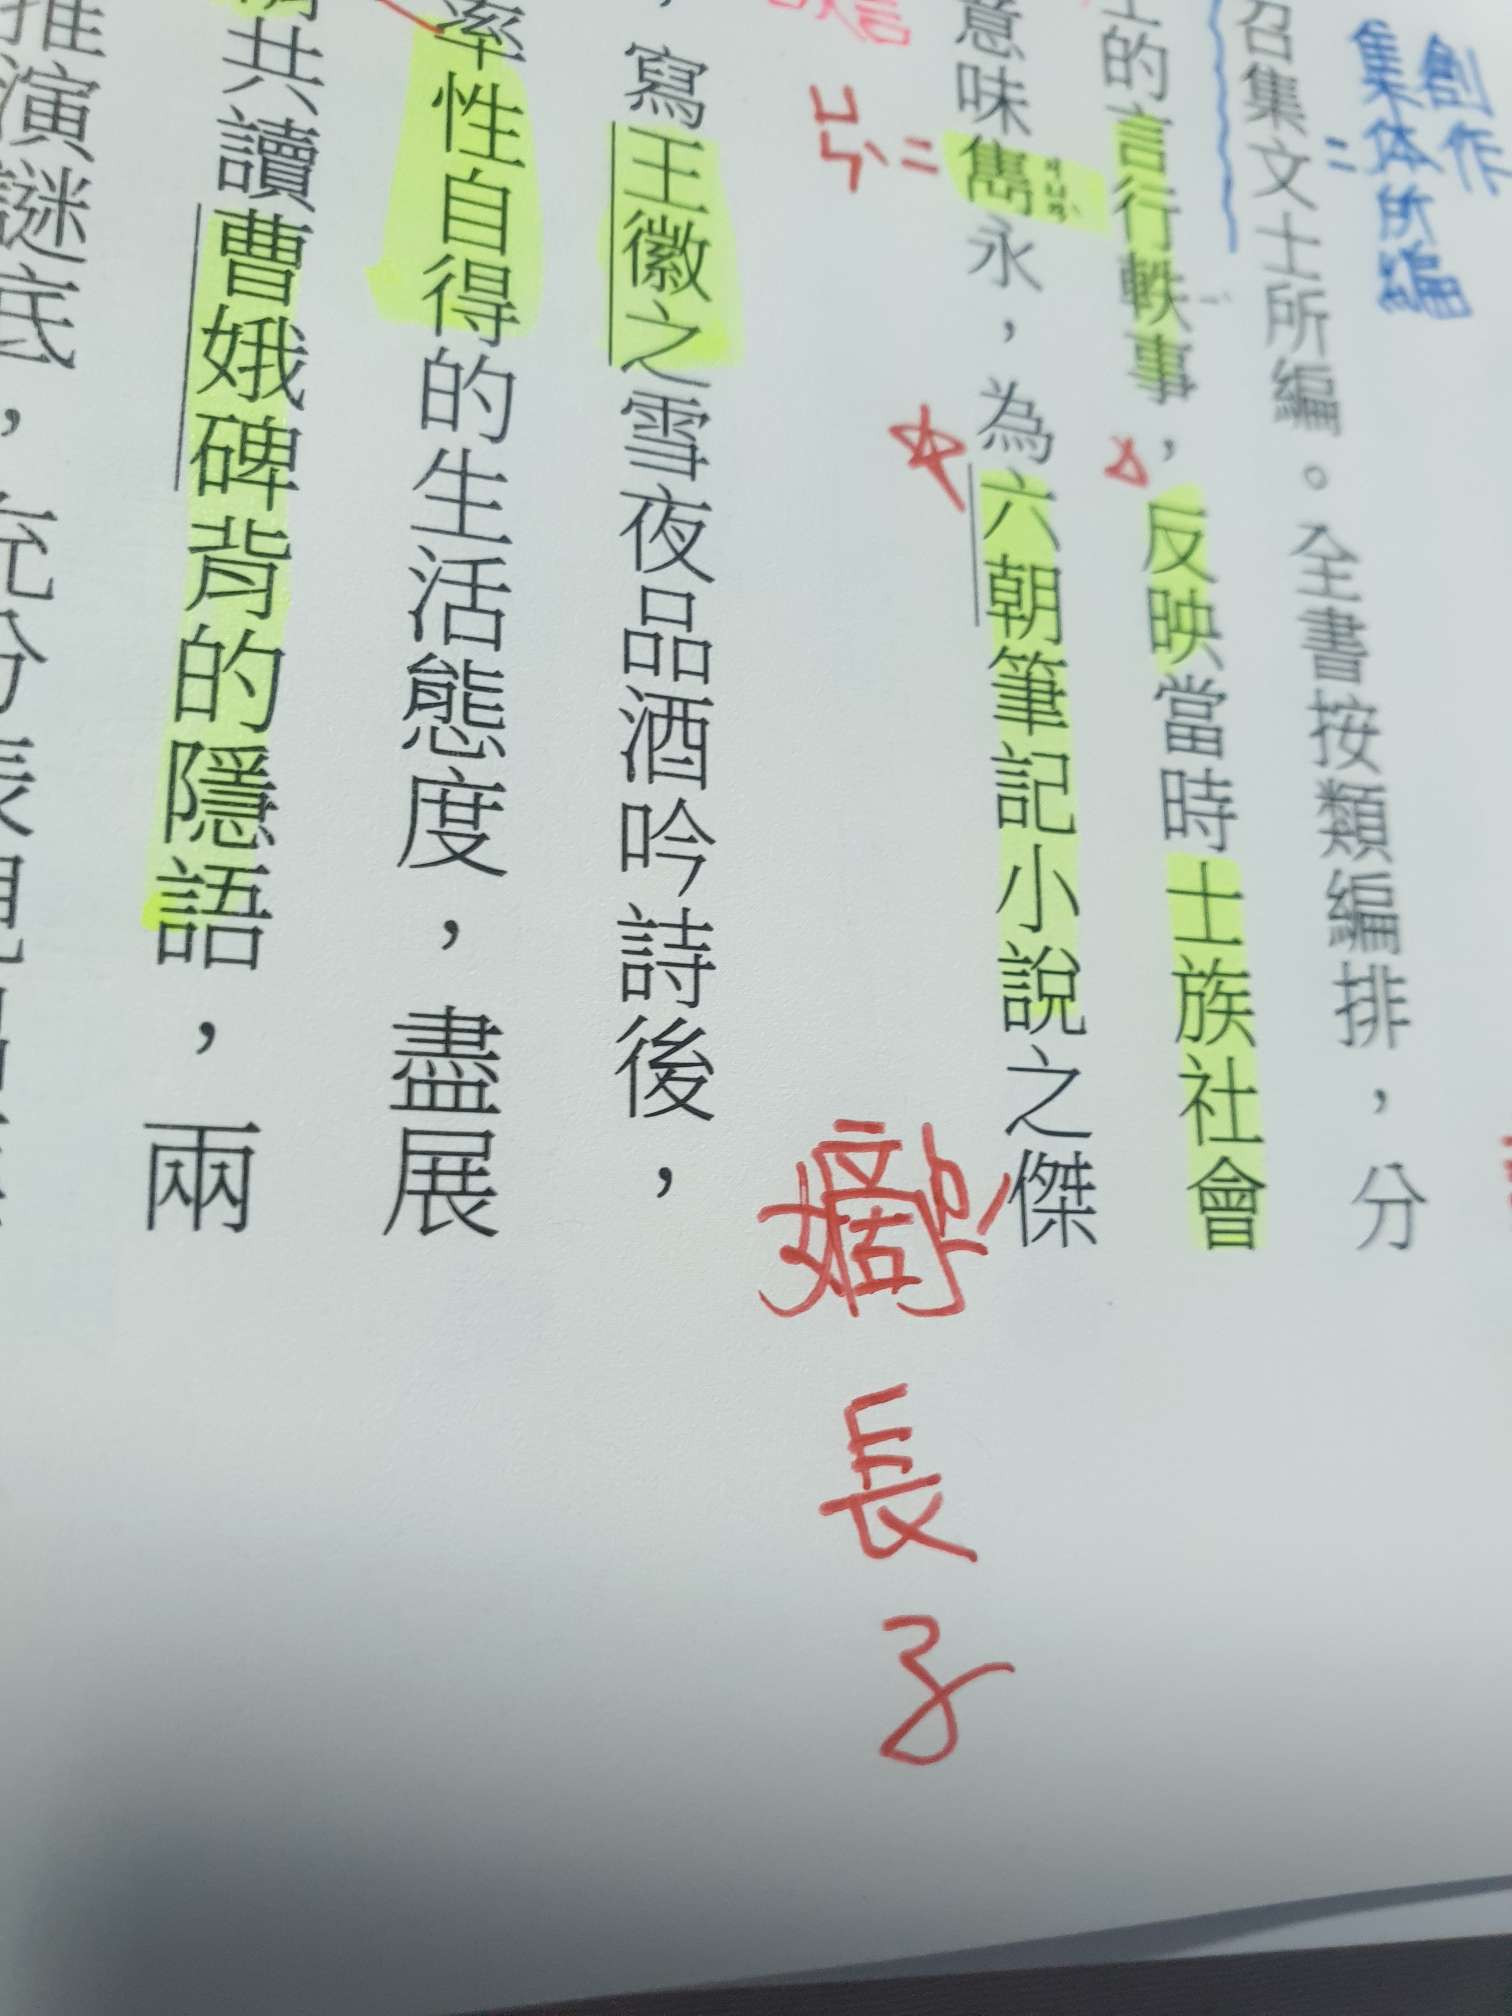 創作
集体所編
=
召集文士所編。全書按類編排，分
的言行軼事，反映當時士族社會
意味雋永，為六朝筆記小說之傑
ㄐㄩㄢˋ
嫡長子
ㄉㄧˊ
，寫王徽之雪夜品酒吟詩後，
率性自得的生活態度，盡展
共讀曹娥碑背的隱語，兩
推演謎底，充分表現